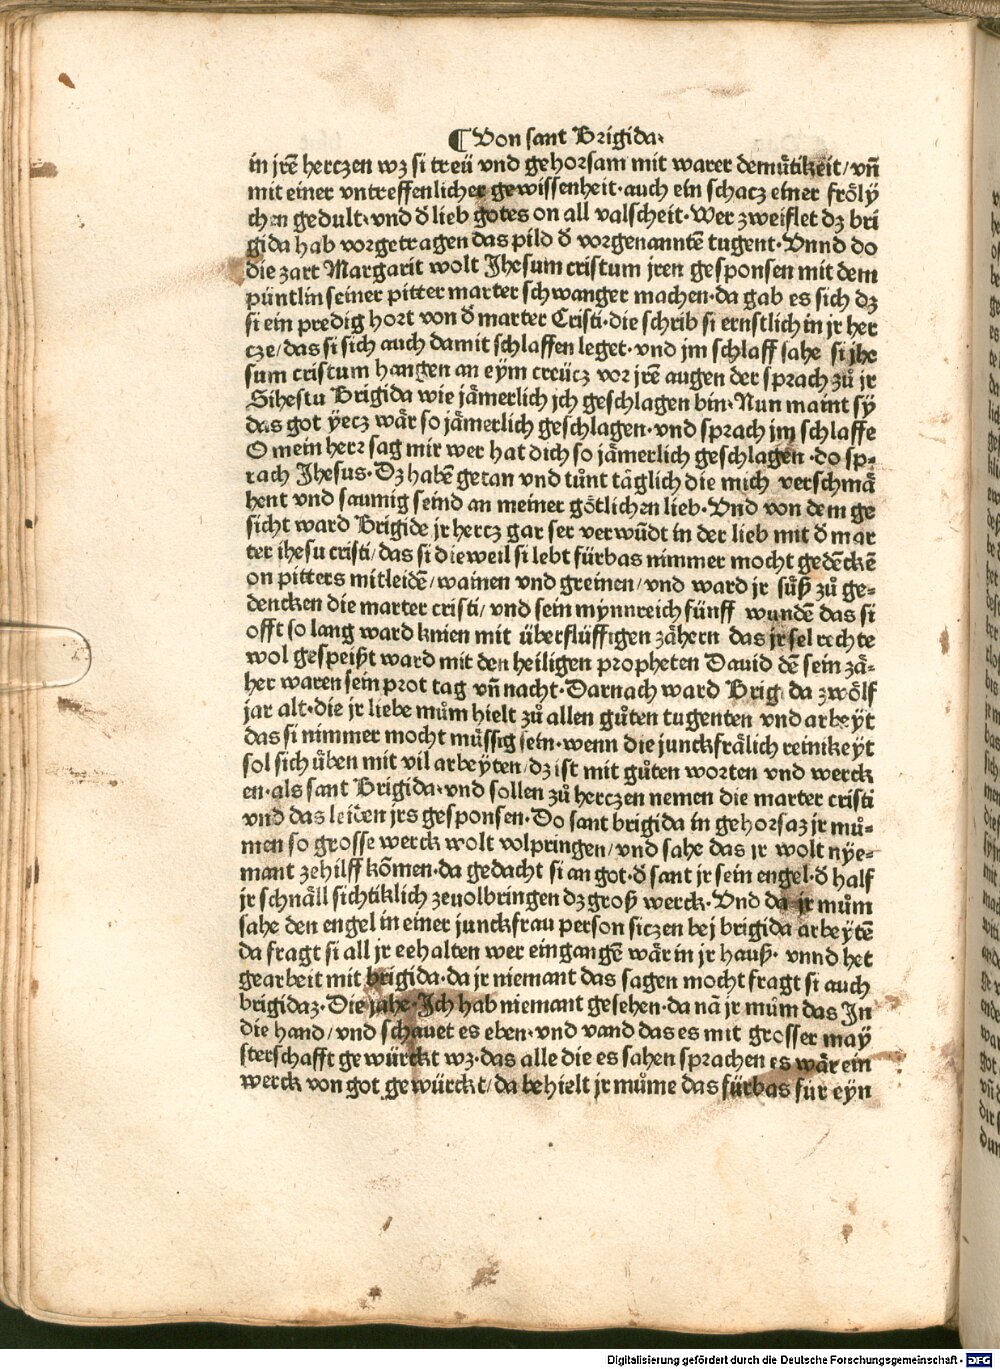 ¶ Von sant Brigida·
in jrē herczen wz si treü vnd gehorsam mit warer demůtikeit/ vñ
mit einer vntreffenlicher gewissenheit· auch ein schacz einer frölÿ
chen gedult· vnd d̄ lieb gotes on all valscheit· Wer zweiflet dz bri
gida hab vorgetragen das pild d̄ vorgenanntē tugent· Vnnd do
die zart Margarit wolt Jhesum cristum jren gesponsen mit dem
püntlin seiner pitter marter schwanger machen· da gab es sich dz
si ein predig hort von d̄ marter Cristi· die schrib si ernstlich in jr her
cze/ das si sich auch damit schlaffen leget· vnd jm schlaff sahe si jhe
sum cristum hangen an eÿm creücz vor jrē augen der sprach zů jr
Sihestu Brigida wie jämerlich jch geschlagen bin· Nun maint sÿ
das got ÿecz wär so jämerlich geschlagen· vnd sprach jm schlaffe
O mein herr sag mir wer hat dich so jämerlich geschlagen· do sp-
rach Jhesus· Dz habē getan vnd tůnt täglich die mich verschmä
hent vnd saumig seind an meiner götlichen lieb· Vnd von dem ge
sicht ward Brigide jr hercz gar ser verwūdt in der lieb mit d̄ mar
ter ihesu cristi/ das si dieweil si lebt fürbas nimmer mocht gedēckē
on pitters mitleidē/ wainen vnd greinen/ vnd ward jr süß zů ge-
dencken die marter cristi/ vnd sein mynnreich fünff wundē das si
offt so lang ward knien mit überflüssigen zähern das jr sel rechte
wol gespeißt ward mit den heiligen propheten Dauid dē sein zä-
her waren sein prot tag vñ nacht· Darnach ward Brigida zwölf
jar alt· die jr liebe mům hielt zů allen gůten tugenten vnd arbeÿt
das si nimmer mocht müssig sein· wenn die junckfrälich reinikeÿt
sol sich üben mit vil arbeÿten/ dz ist mit gůten worten vnd werck
en· als sant Brigida· vnd sollen zů herczen nemen die marter cristi
vnd das leiden jrs gesponsen· Do sant brigida in gehorsaz jr mů-
men so grosse werck wolt volpringen/ vnd sahe das jr wolt nÿe-
mant zehilff kōmen· da gedacht si an got· d̄ sant jr sein engel· d̄ half
jr schnäll sichtiklich zeuolbringen dz groß werck· Vnd da jr mům
sahe den engel in einer junckfrau person siczen bej brigida arbeÿtē
da fragt si all jr eehalten wer eingangē wär in jr hauß· vnnd het
gearbeit mit brigida· da jr niemant das sagen mocht fragt si auch
brigidaz· Die jahe· Jch hab niemant gesehen· da nā jr mům das Jn
die hand/ vnd schauet es eben· vnd vand das es mit grosser maÿ
sterschafft gewürckt wz· das alle die es sahen sprachen es wär ein
werck von got gewürckt/ da behielt jr můme das fürbas für eÿn
Digitalisierung gefördert durch die Deutsche Forschungsgemeinschaft - DFG